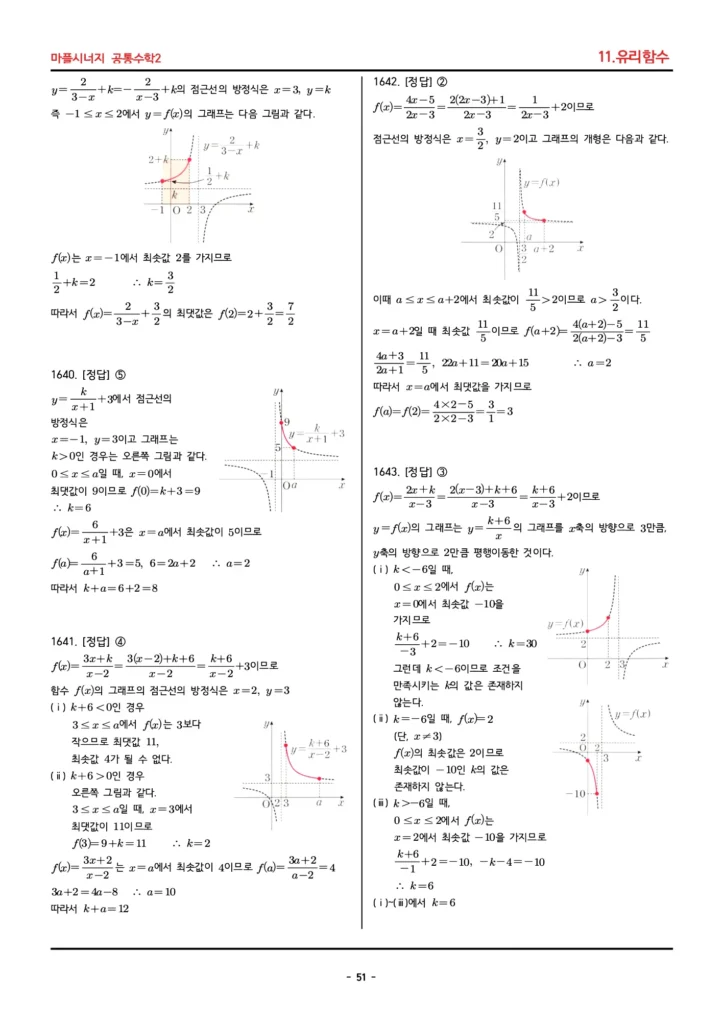 마플시너지 공통수학2
11.유리함수
y=2/(3-x)+k=-2/(x-3)+k의 점근선의 방정식은 x=3, y=k
즉 -1≤x≤2에서 y=f(x)의 그래프는 다음 그림과 같다.
y
y=2/(3-x)+k
2+k
1/2+k
k
-1 O 2 3 x
f(x)는 x=-1에서 최솟값 2를 가지므로
1/2+k=2 ∴ k=3/2
따라서 f(x)=2/(3-x)+3/2의 최댓값은 f(2)=2+3/2=7/2
1640. [정답] ⑤
y=k/(x+1)+3에서 점근선의
방정식은
x=-1, y=3이고 그래프는
k>0인 경우는 오른쪽 그림과 같다.
0≤x≤a일 때, x=0에서
최댓값이 9이므로 f(0)=k+3=9
∴ k=6
y
9
y=k/(x+1)+3
5
-1
O a x
f(x)=6/(x+1)+3은 x=a에서 최솟값이 5이므로
f(a)=6/(a+1)+3=5, 6=2a+2 ∴ a=2
따라서 k+a=6+2=8
1641. [정답] ④
f(x)=(3x+k)/(x-2)=(3(x-2)+k+6)/(x-2)=(k+6)/(x-2)+3이므로
함수 f(x)의 그래프의 점근선의 방정식은 x=2, y=3
(ⅰ) k+6<0인 경우
3≤x≤a에서 f(x)는 3보다
작으므로 최댓값 11,
최솟값 4가 될 수 없다.
(ⅱ) k+6>0인 경우
오른쪽 그림과 같다.
3≤x≤a일 때, x=3에서
최댓값이 11이므로
f(3)=9+k=11 ∴ k=2
y
y=(k+6)/(x-2)+3
3
O 2 3 a x
f(x)=(3x+2)/(x-2)는 x=a에서 최솟값이 4이므로 f(a)=(3a+2)/(a-2)=4
3a+2=4a-8 ∴ a=10
따라서 k+a=12
1642. [정답] ②
f(x)=(4x-5)/(2x-3)=(2(2x-3)+1)/(2x-3)=1/(2x-3)+2이므로
점근선의 방정식은 x=3/2, y=2이고 그래프의 개형은 다음과 같다.
y
y=f(x)
11/5
2
a
O 3/2 a+2 x
이때 a≤x≤a+2에서 최솟값이 11/5>2이므로 a>3/2이다.
x=a+2일 때 최솟값 11/5이므로 f(a+2)=(4(a+2)-5)/(2(a+2)-3)=11/5
(4a+3)/(2a+1)=11/5, 22a+11=20a+15 ∴ a=2
따라서 x=a에서 최댓값을 가지므로
f(a)=f(2)=(4×2-5)/(2×2-3)=3/1=3
1643. [정답] ③
f(x)=(2x+k)/(x-3)=(2(x-3)+k+6)/(x-3)=(k+6)/(x-3)+2이므로
y=f(x)의 그래프는 y=(k+6)/x의 그래프를 x축의 방향으로 3만큼,
y축의 방향으로 2만큼 평행이동한 것이다.
(ⅰ) k<-6일 때,
0≤x≤2에서 f(x)는
x=0에서 최솟값 -10을
가지므로
(k+6)/-3+2=-10 ∴ k=30
그런데 k<-6이므로 조건을
만족시키는 k의 값은 존재하지
않는다.
y
y=f(x)
2
O 2 3 x
(ⅱ) k=-6일 때, f(x)=2
(단, x≠3)
f(x)의 최솟값은 2이므로
최솟값이 -10인 k의 값은
존재하지 않는다.
y
y=f(x)
2
O 2 3 x
-10
(ⅲ) k>-6일 때,
0≤x≤2에서 f(x)는
x=2에서 최솟값 -10을 가지므로
(k+6)/-1+2=-10, -k-4=-10
∴ k=6
(ⅰ)~(ⅲ)에서 k=6
- 51 -